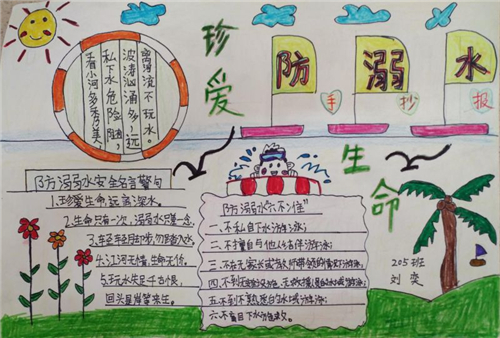 珍爱
生命
防溺水
手抄报
看小河多秀美
私下水危险隐，
波涛汹涌多，远
离河流不玩水。
防溺水安全名言警句
1.珍爱生命,远离深水。
2.生命只有一次,溺水只差一念.
4.江河无情,生命无价.
5.玩水失足千古恨,
回头是岸
防溺水"六不准"
一、不私自下水游泳;
二、不擅自与他人结伴游泳;
三、不在无家长或教师带领的情况下游泳;
四、不到无安全设施、无救援人员的水域游泳;
五、不到不熟悉的水域游泳;
六、不盲目下水施救。
205班
刘奕